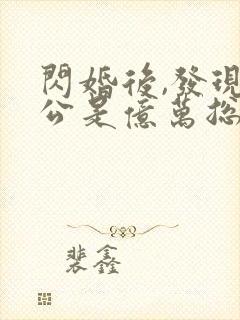 閃婚後,發現
公是億萬總
裴鑫